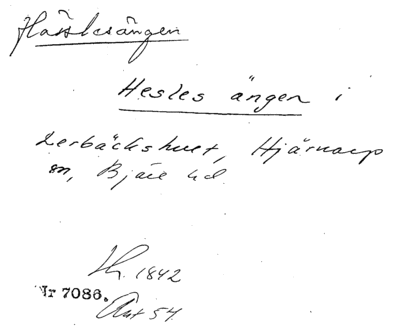 Hässlesängen
Hesles ängen i
Lerbäckshult, Hjärnarp
sn, Bjäre hd.
Lh. 1842
Nr 7086.
Akt 54